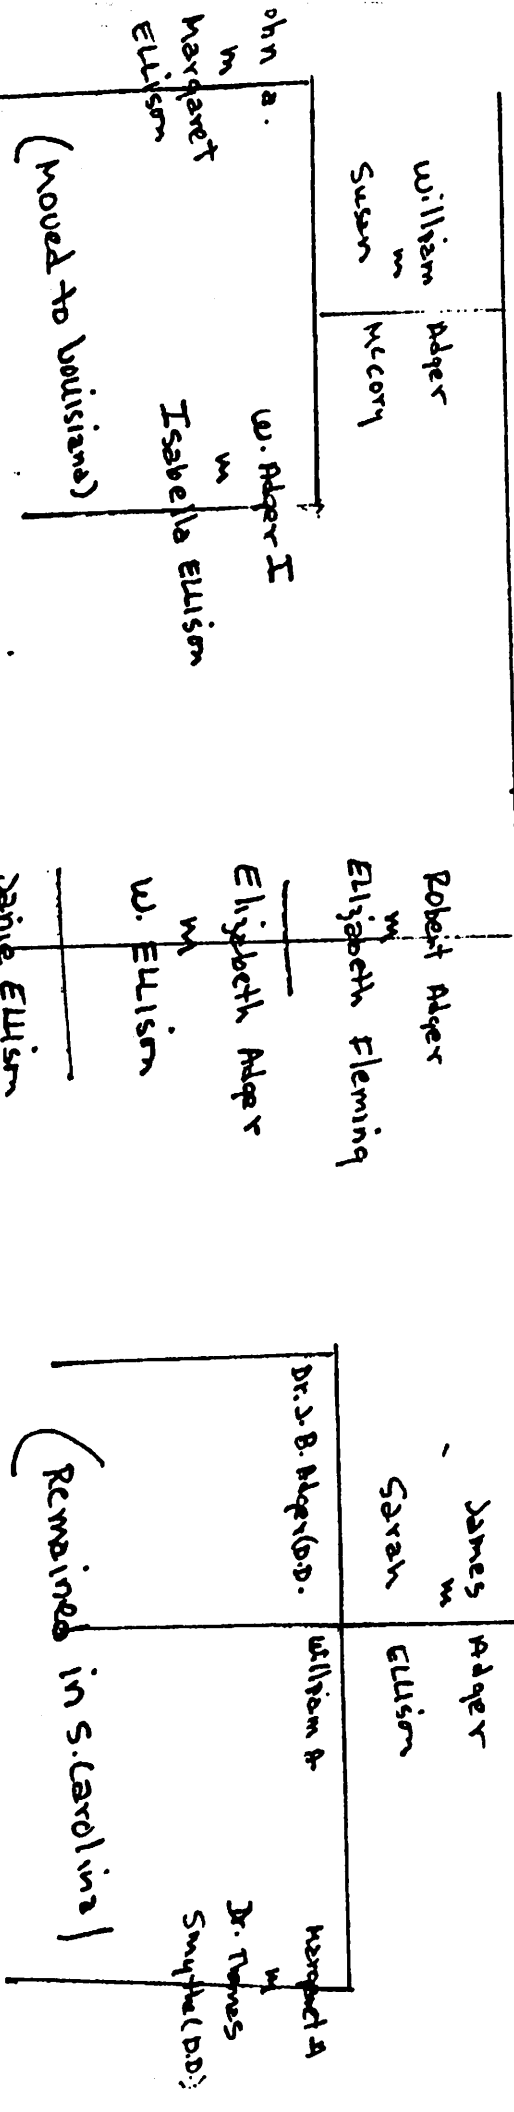 William Adger
m
Susan McCory
ohn a.
m
Margaret
ELLison
W. Adger I
m
Isabella ELLison
(Moved to Louisiana)
Robert Adger
m
Elizabeth Fleming
Elizabeth Adger
m
W. ELLison
ELLison
James Adger
m
Sarah ELLison
Dr. J. B. Adger (D.D.
William A
Margaret A
m
Dr. Thomas
Smythe (D.D.)
(Remained in S. Carolina)